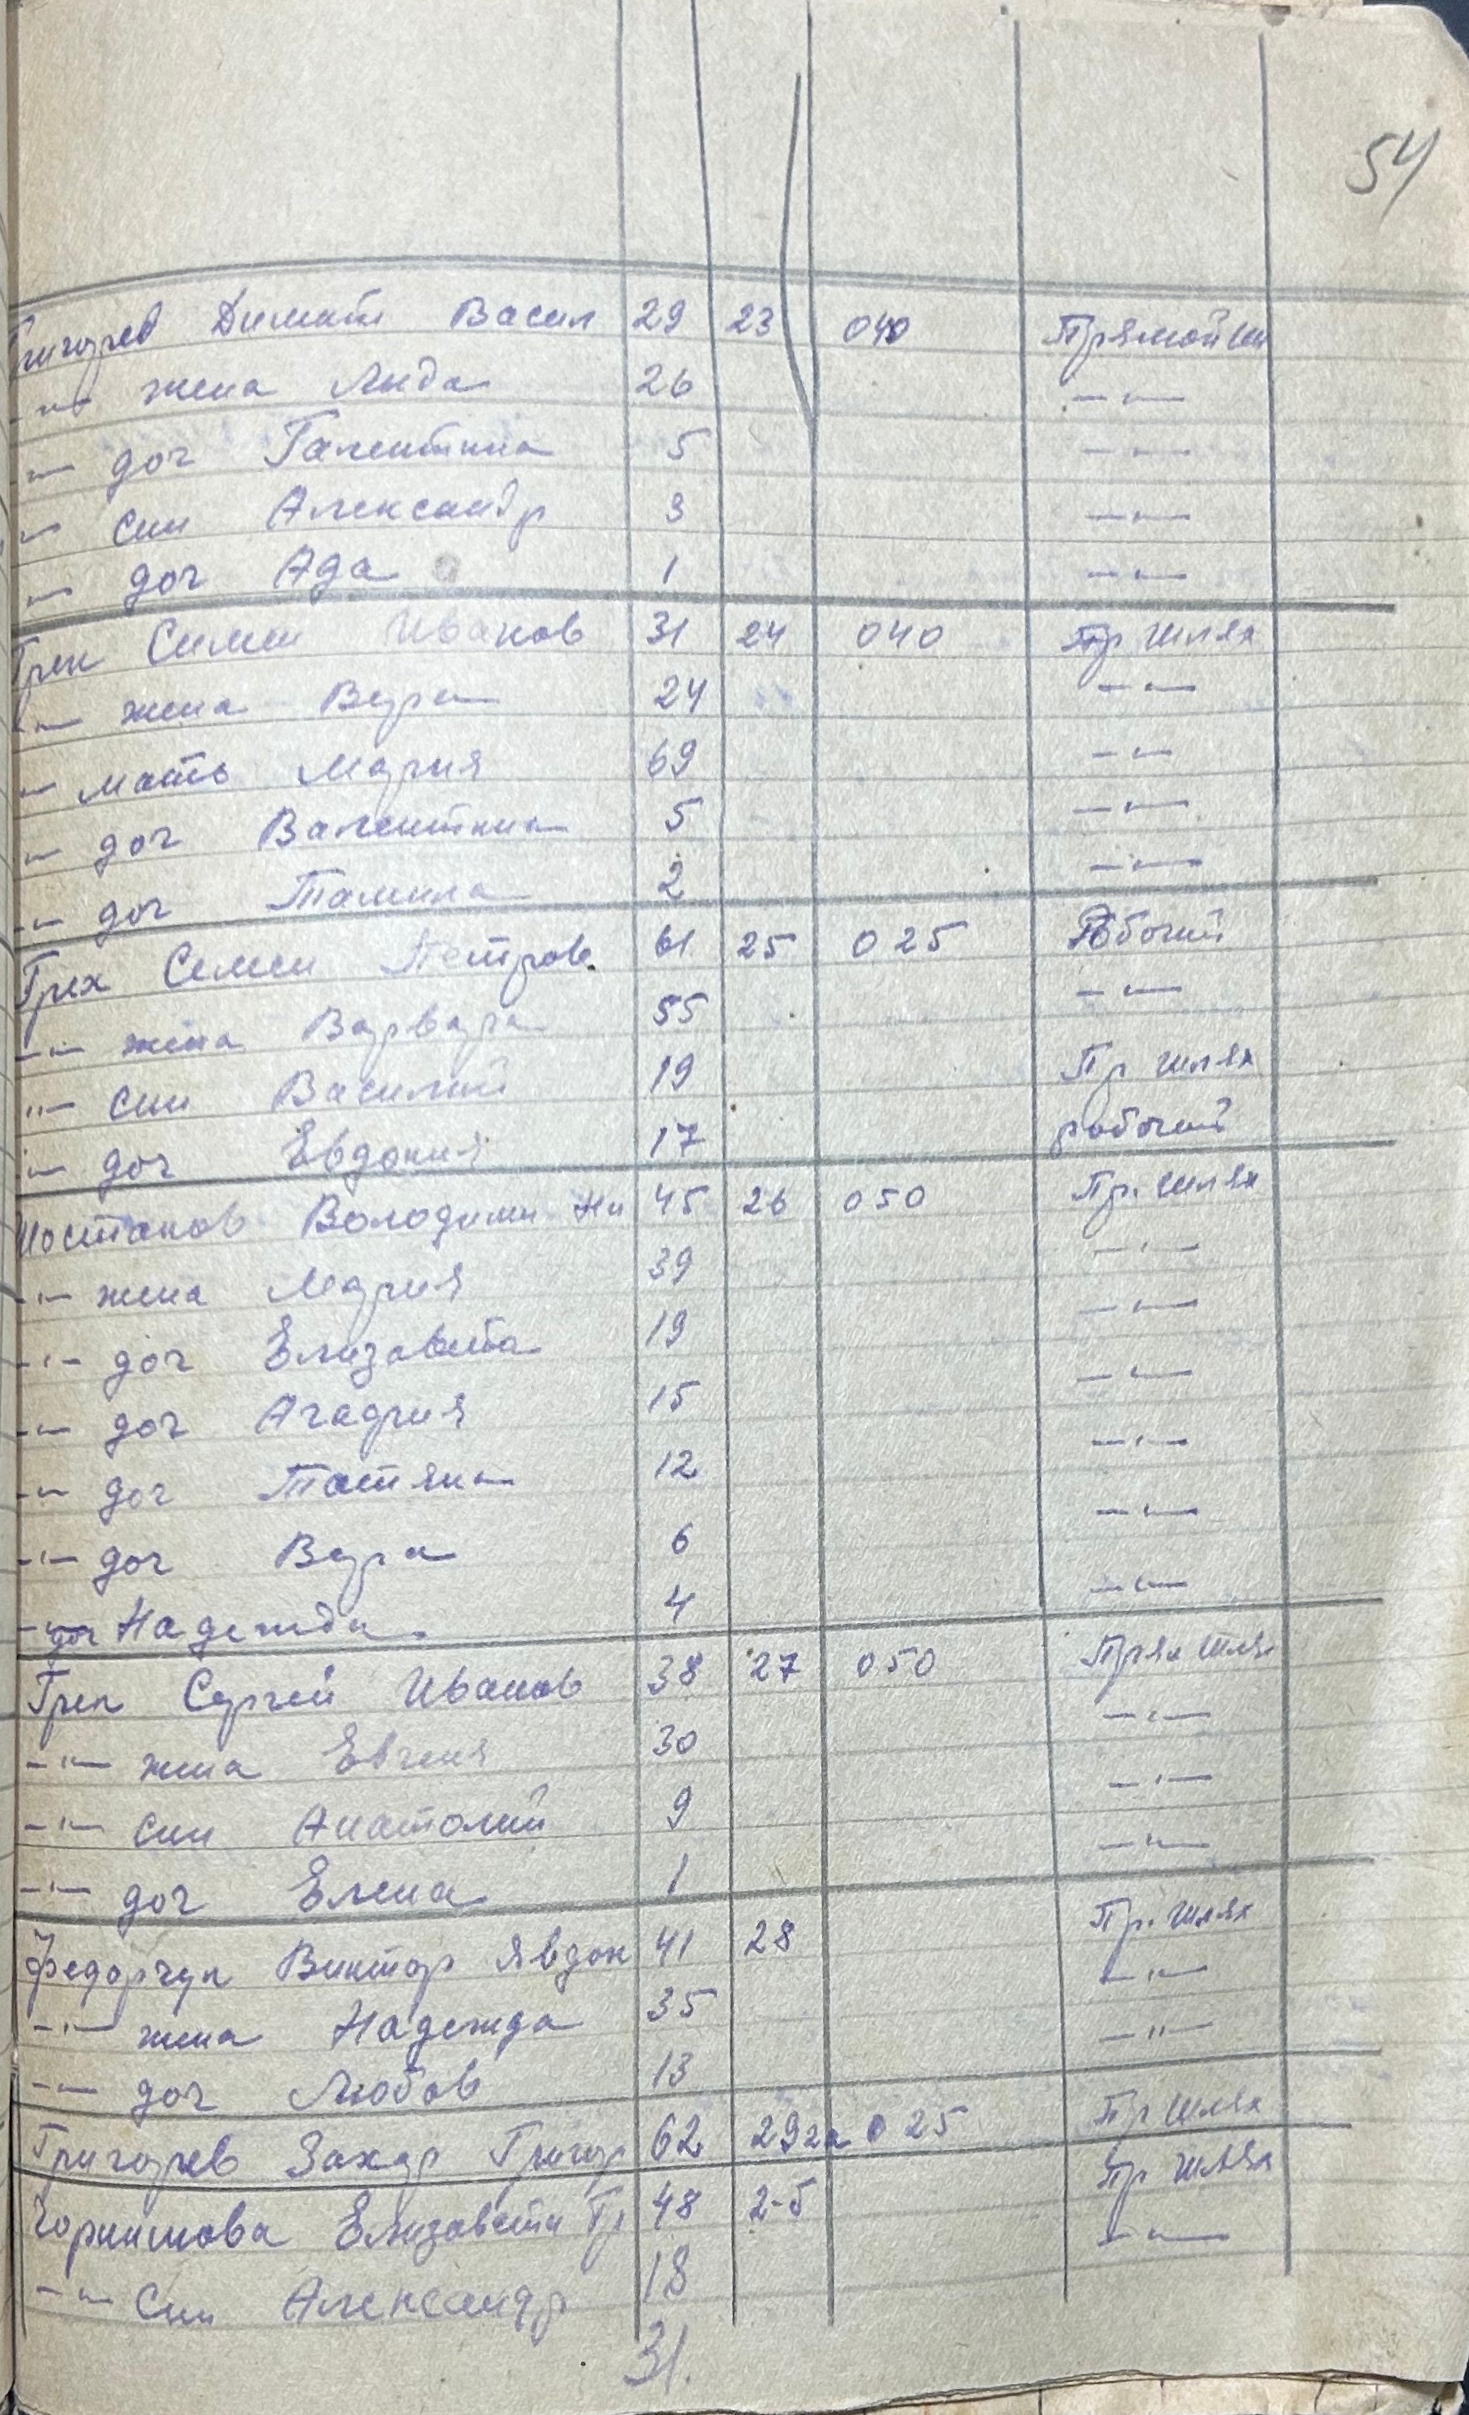 54
Григорев Димит Васил 29 23 040 Прямой шл
-"- жена Лида 26 -"-
-"- доч Галентина 5 -"-
-"- син Александр 3 -"-
-"- доч Ада 1 -"-
Грек Симен Иванов 31 24 040 Пр шлях
-"- жена Вера 24 -"-
-"- мать Мария 69 -"-
-"- доч Валентина 5 -"-
-"- доч Тамила 2 -"-
Грек Семен Петров. 61 25 025 Рбочий
-"- жена Варвара 55 -"-
-"- син Василий 19 Пр шлях
-"- доч Евдокия 17 рабочий
Володими Ни 45 26 050 Пр. шлях
-"- жена Мария 39 -"-
-"- доч Елизавета 19 -"-
-"- доч 15 -"-
-"- доч Татяна 12 -"-
-"- доч Вера 6 -"-
-"- доч Надежда 4 -"-
Грек Сергей Иванов 38 27 050 Прям шлях
-"- жена Евгеня 30 -"-
-"- син Анатолий 9 -"-
-"- доч Елена 1 -"-
Федорчук Виктор Явдок 41 28 Пр. шлях
-"- жена Надежда 35 -"-
-"- доч Любов 13 -"-
Григорев Захар Григор 62 29 2а 025 Пр шлях
Елизавета Гр 48 2-б Пр шлях
-"- син Александр 18 -"-
31.